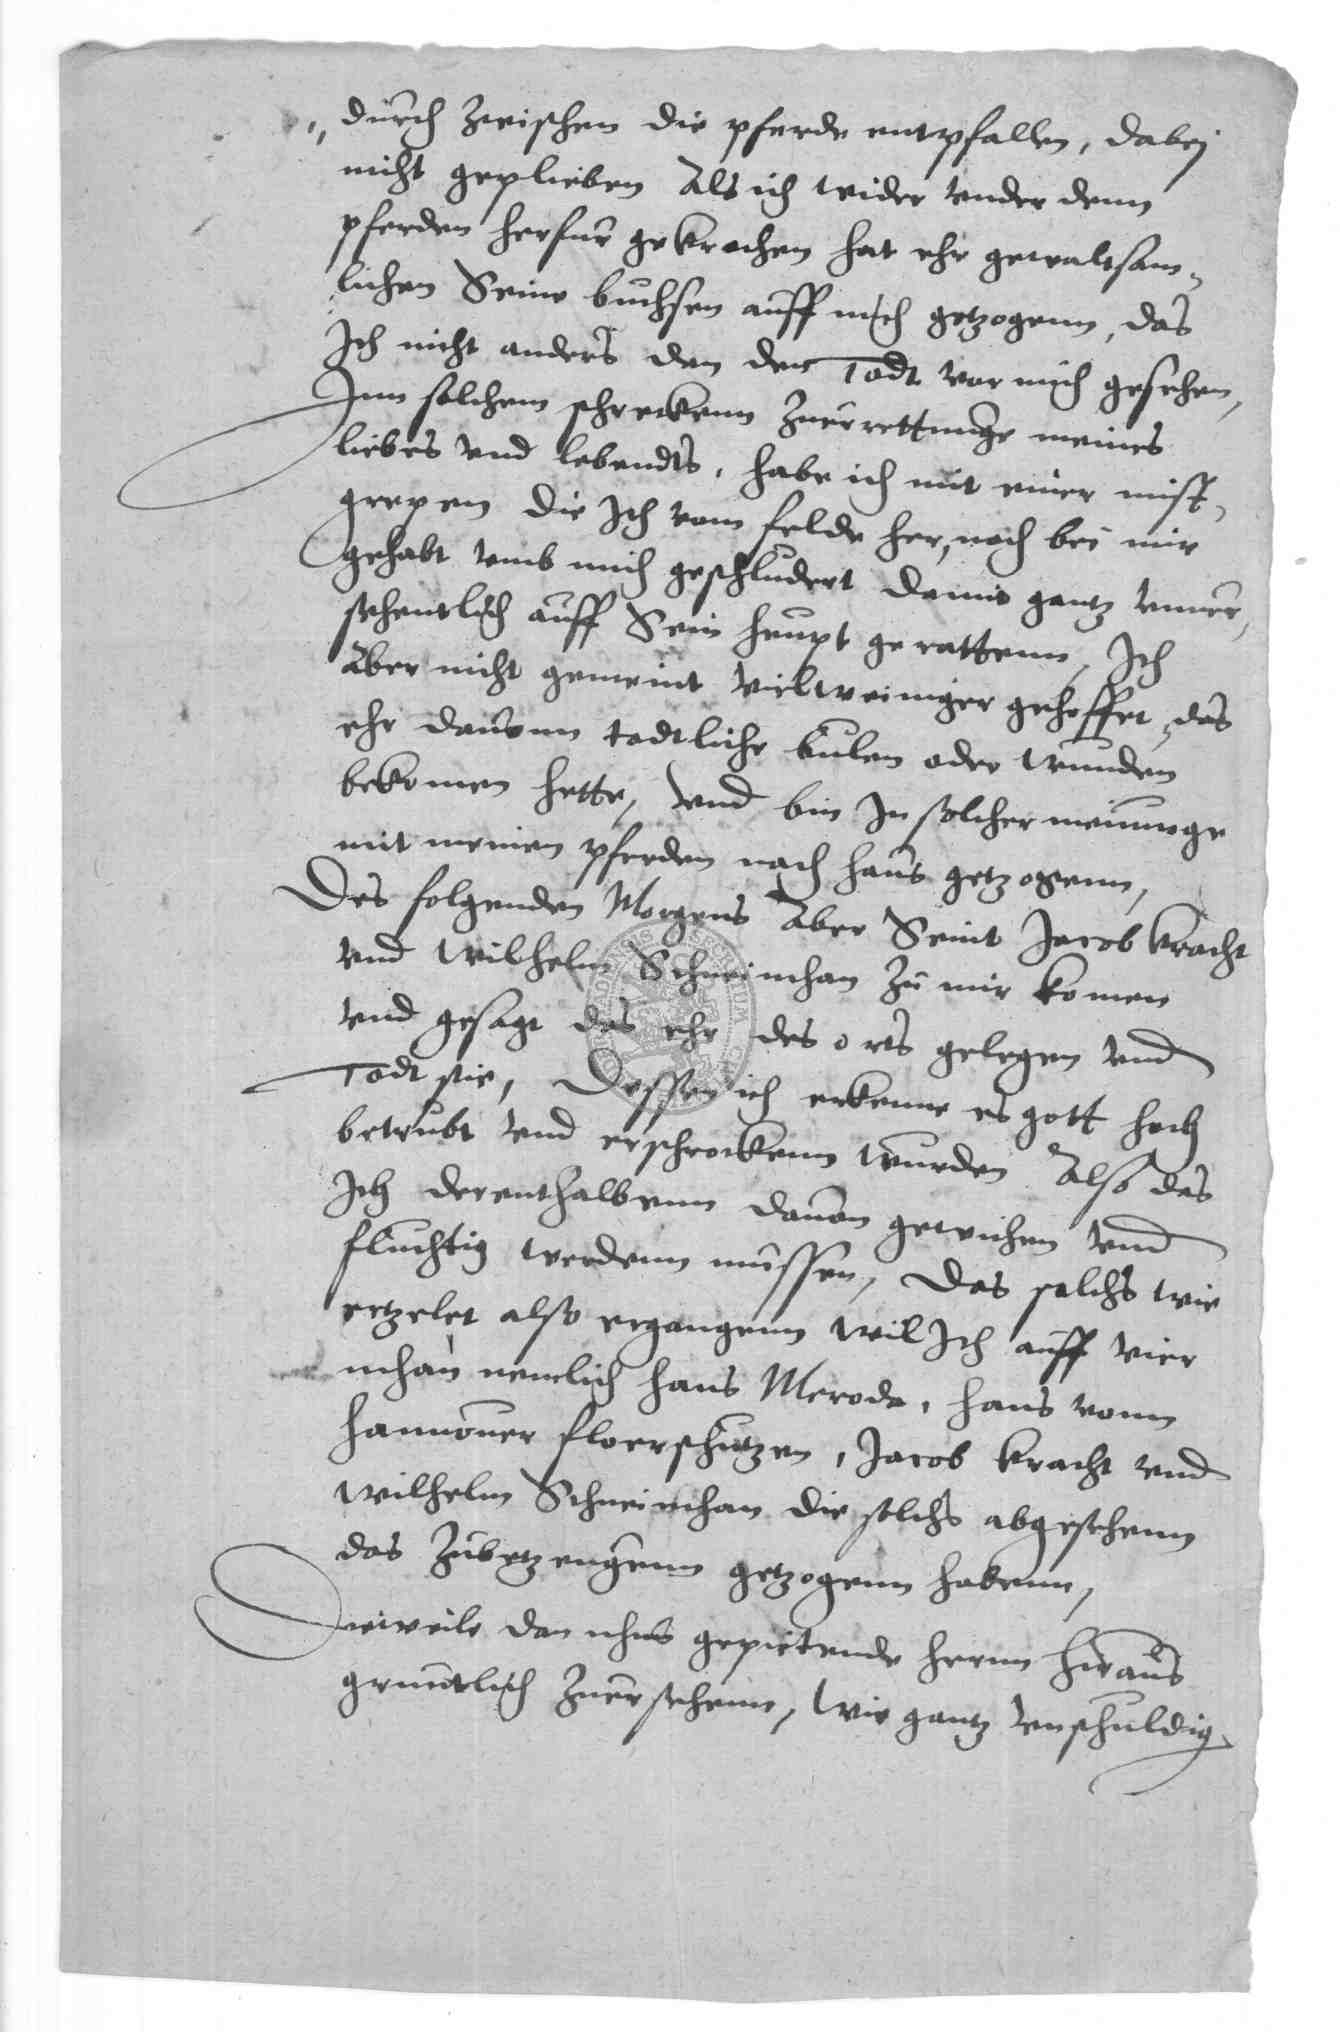 durch zwischen die pferde entpfallen, dabej
nicht geplieben Als ich wider vnder denn
pferden herfur gekrochen hat ehr gewaltsam-
lichen Seine buchsen auff mich getzogenn, das
Ich nicht anders dan den Todt vor mich gesehen,
Inn solchem schreckenn Zuerrettunge meines
liebes vnd lebendts, habe ich mit einer mist-
grepen die Ich vom felde her, noch bei mir
gehabt vmb mich geschludert damit gantz vnuer-
sehentlich auff Sein heupt gerattenn, Ich
aber nicht gemeint vielweiniger gehoffet, das
ehr dauonn todtliche bulen oder wunden
bekomen hette, vnd bin In solcher meinunge
mit meinen pferden nach haus getzogenn,
Des folgenden Morgens Aber Seint Jacob kracht
vnd Wilhelm Schneinchan zu mir komen
vnd gesagt das ehr des orts gelegen vnd
Todt sie, Dessen ich erkenne es gott hoch
betrubt vnd erschrockenn wurden Also das
Ich derenthalbenn dauon gewichen vnd
fluchtig werdenn mussen, Das solchs wie
ertzelet also ergangenn wil Ich auff vier
mhan nemlich hans Merode, hans vonn
hannouer floerschutzen, Jacob kracht vnd
Wilhelm Schneinchan die solchs abgesehenn
das Zubetzeugenn getzogenn habenn,
Dieweile dan uhns gepietende herrn hiraus
gruntlich Zuersehenn, wie gantz vnschuldig